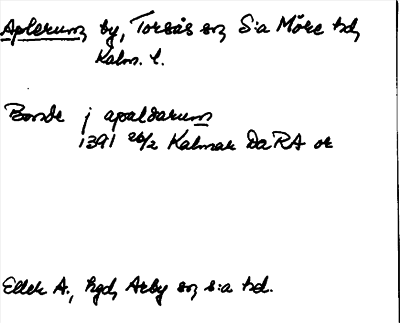 Aplerum, by, Torsås sn, S:a Möre hd,
Kalm. l.
Bonde j apaldarum
1391 26/2 Kalmar DaRA or
Eller A., hgd, Arby sn s:a hd.